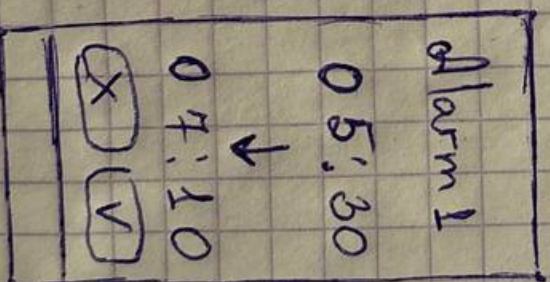 Alarm 1
05:30
↓
07:10
X V